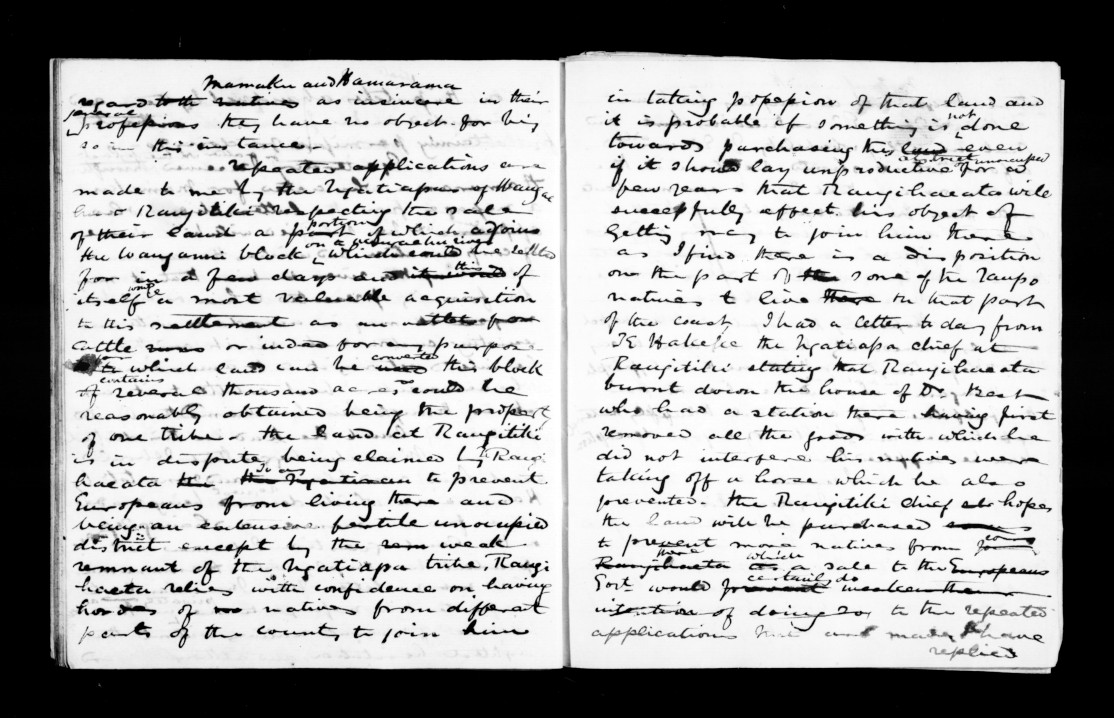 Mamaku and Hamarama
regard to the natives as insincere in their
professions they have no object for being
so in this instance.
repeated applications are
made to me by the Ngatiapas of Wanga
& Rangitiki respecting the sale
of their land a part portion of which adjoins
the Wanganui block which could be settled
for in a few days and of
itself a most valuable acquisition
to this settlement as an outlet for
cattle or indeed for any purpose
to which land can be used converted this block
contains of several thousand acres could be
reasonably obtained being the property
of one tribe. the land at Rangitiki
is in dispute being claimed by Rangi
haeata the to prevent
Europeans from living there and
being an extensive fertile unoccupied
district except by the rem weak
remnant of the Ngatiapa tribe, Rangi
haeata relies with confidence on having
hordes of natives from different
parts of the country to join him
in taking possession of that land and
it is probable if something is not done
towards purchasing this land even
district unoccupied
if it should lay unproductive for a
few years that Rangihaeata will
successfully effect his object of
getting many to join him there
as I find there is a disposition
on the part of the some of the Taupo
natives to live there in that part
of the coast. I had a letter to day from
the Ngatiapa chief at
Rangitiki stating that Rangihaeata
burnt down the house of Dr. Best
who had a station there having first
removed all the goods with which he
did not interfere his natives were
taking off a horse which he also
prevented. the Rangitiki chief also hopes
the land will be purchased
to prevent more natives from joining
Rangihaeata there which a sale to the Europeans
Govt. would prevent certainly do weaken their
intention of doing so, to the repeated
applications that are made I have
replied